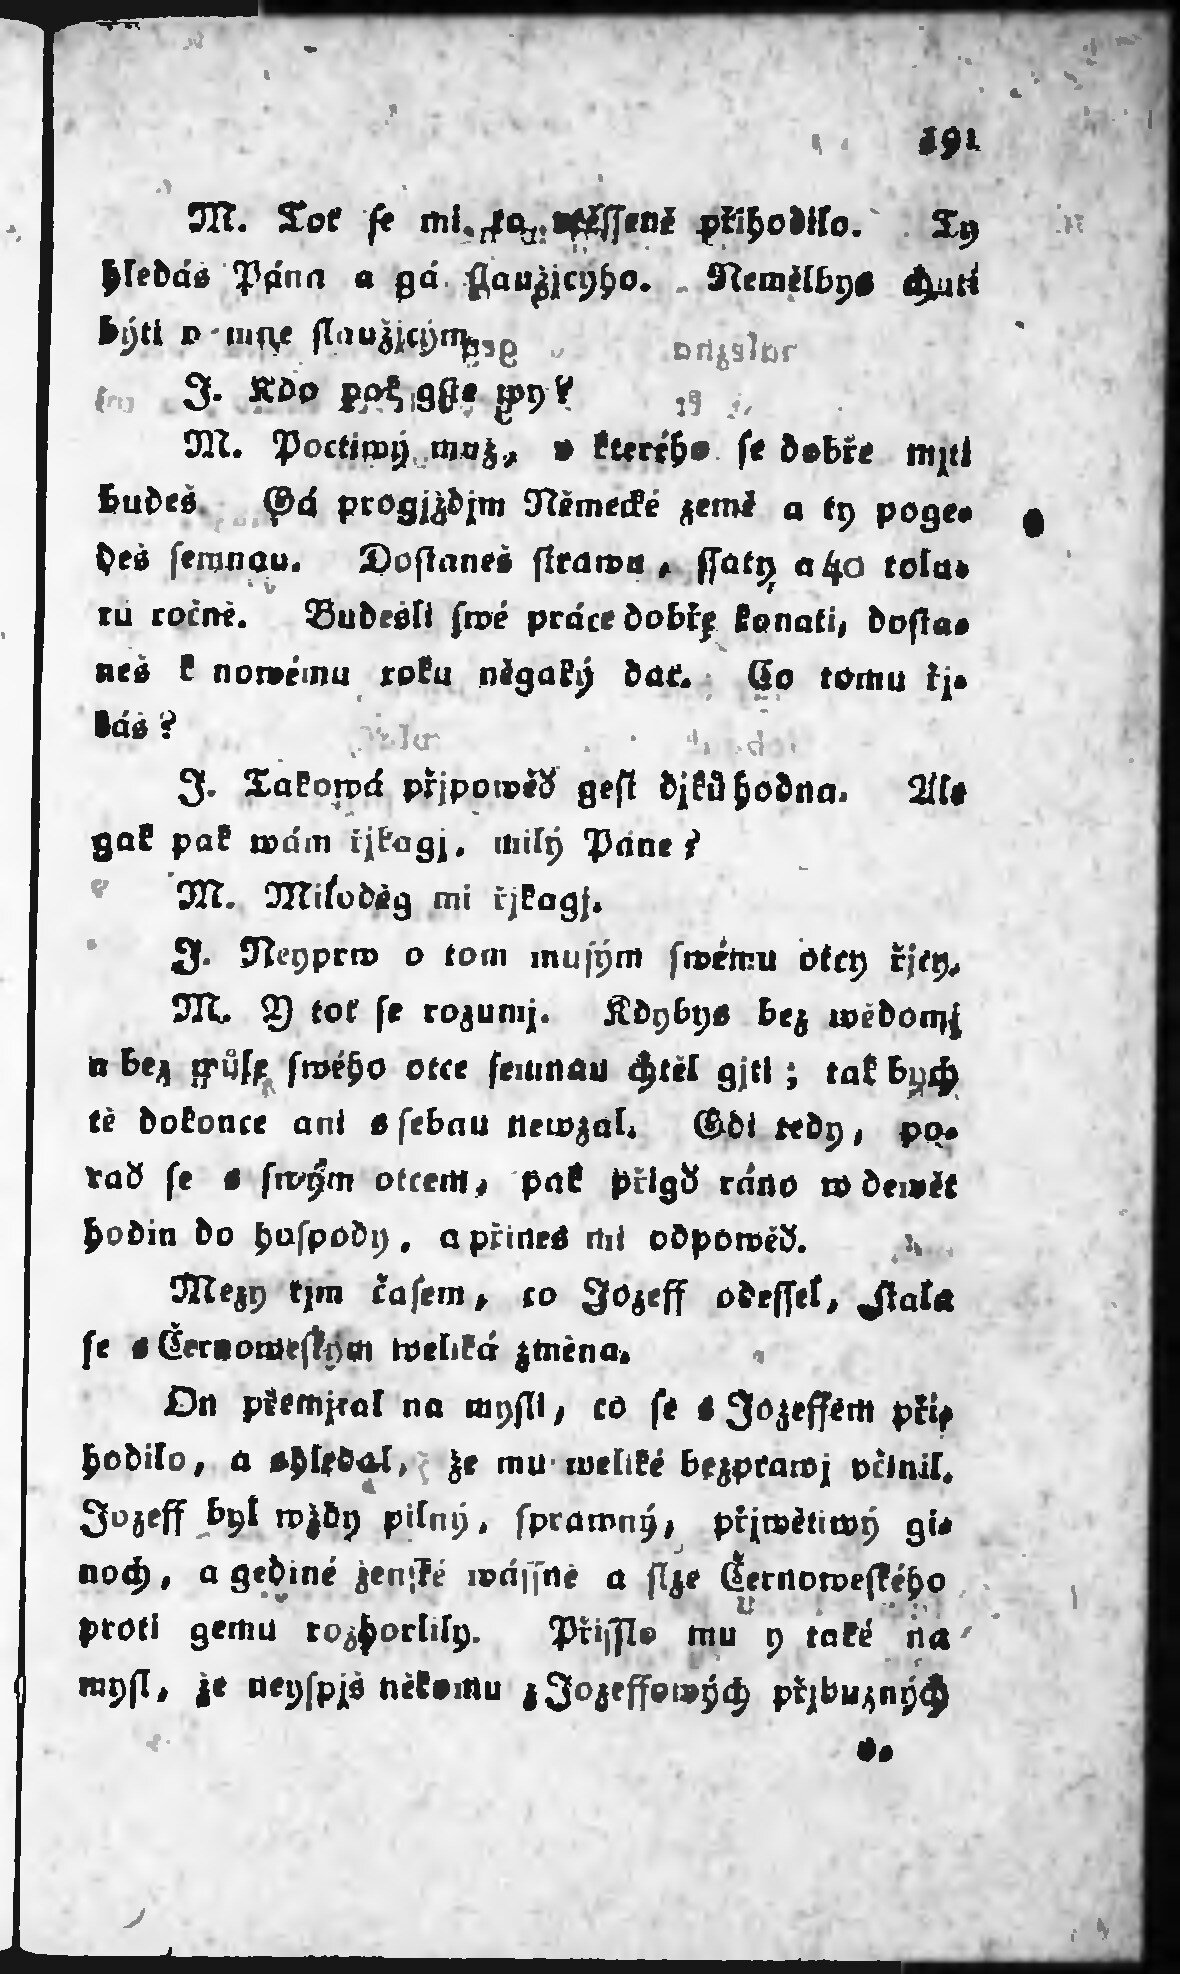 191
M. Toť se mi to utěsseně přihodilo. Ty
hledáš Pána a gá slaužjcyho. Nemělbys chuti
býti v mne slaužjcým
J. Kdo pak gste wy?
M. Poctiwý muž, v kterého se dobře mjti
budeš. Gá progjždjm Německé země a ty poge-
deš semnau. Dostaneš strawu, ssaty a 40 tola-
rů ročně. Budešli swé práce dobře konati, dosta-
neš k nowému roku něgaký dar. Co tomu řj-
káš?
J. Takowá přjpowěď gest djkůhodna. Ale
gak pak wám řjkagj, milý Páne?
M. Miloděg mi řjkagj.
J. Neyprw o tom musým swému otcy řjcy.
M. Y toť se rozumj. Kdybys bez wědomj
a bez wůle swého otce semnau chtěl gjti; tak bych
tě dokonce ani s sebau newzal. Gdi tedy, po-
raď se s swým otcem, pak přigď ráno w dewět
hodin do hospody, a přines mi odpowěď.
Mezy tjm časem, co Jozeff odessel, stala
se s Černoweským weliká změna.
On přemjtal na mysli, co se s Jozeffem při-
hodilo, a shledal, že mu weliké bezprawj včinil.
Jozeff byl wždy pilný, sprawný, přjwětiwý gi-
noch, a gediné ženské wássně a slze Černoweského
proti gemu rozhorlily. Přisslo mu y také na
mysl, že neyspjš někomu z Jozeffowých přjbuzných